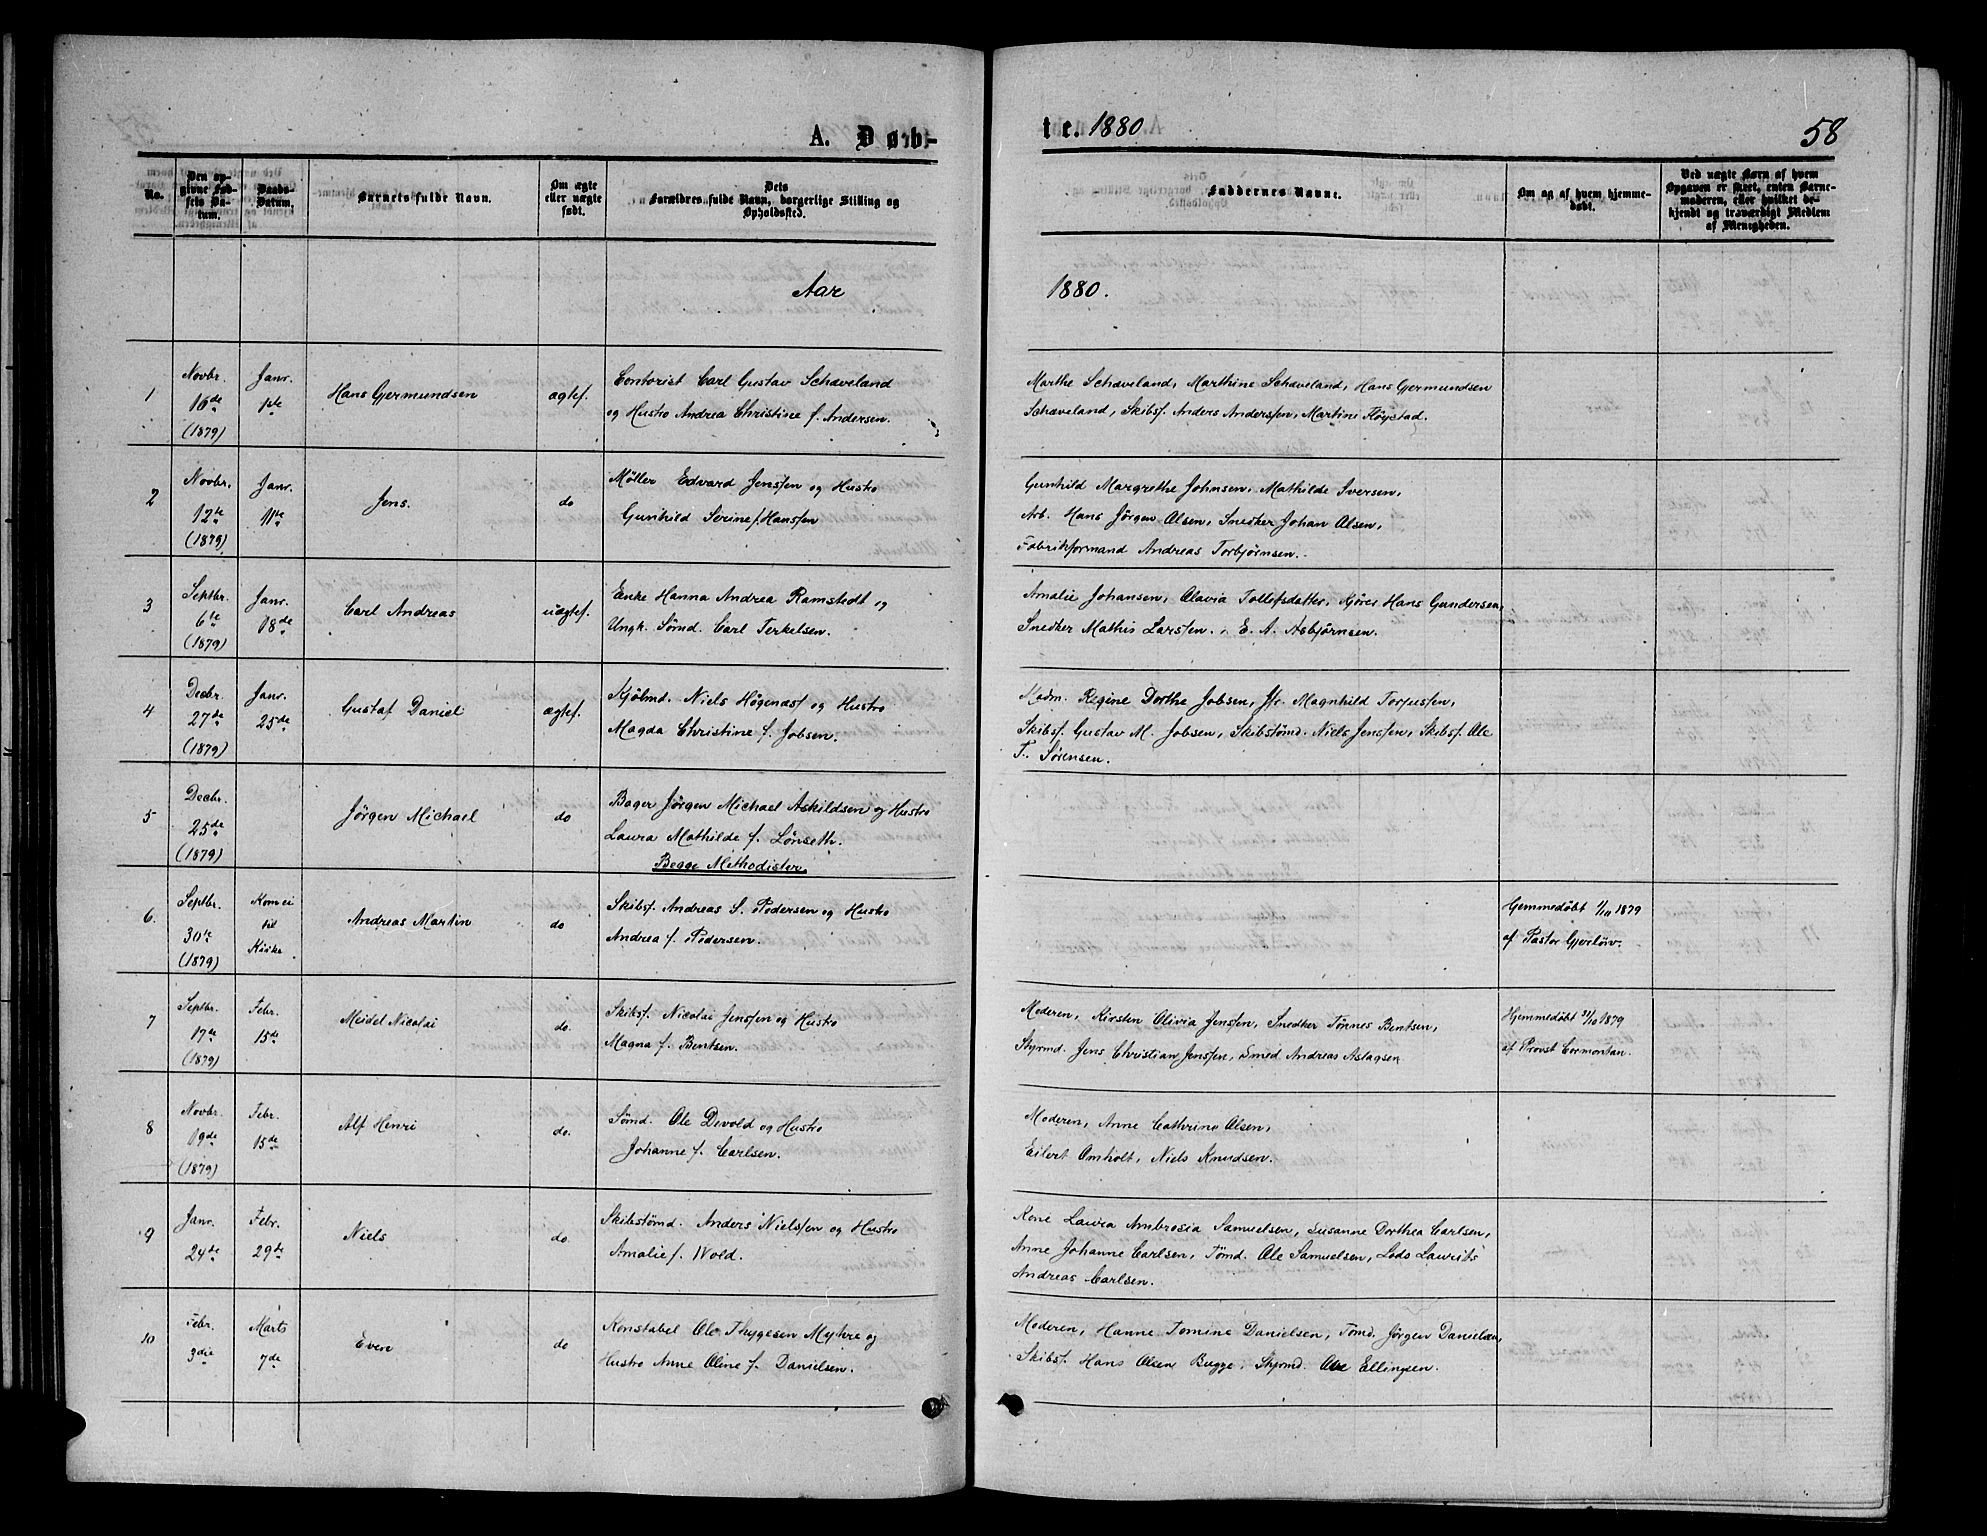 A. Døb-
te. 1880
58
No.
Den opgivne Fødsels Datum.
Daabs-Datum.
Barnets fulde Navn.
Om ægte eller uægte født.
Dets Forældres fulde Navn, borgerlige Stilling og Opholdssted.
Faddernes Navne.
Om og af hvem hjemmedøbt.
Ved uægte Børn af hvem Opgaven er skeet, enten Barnemoderen, eller hvilket bekjendt og troværdigt Medlem af Menigheden.
Aar
1880.
1
Novbr. 16de (1879)
Janr. 1ste
Hans Gjermundsen
ægtef.
Contorist Carl Gustav Schaveland
og Hustro Andrea Christine f. Andersen.
Marthe Schaveland, Marthine Schaveland, Hans Gjermundsen
Schaveland, Skibsf. Anders Anderssen, Martine Høystad.
2
Novbr. 12te (1879)
Janr. 11te
Jens.
do
Møller Edvard Jenssen og Hustro
Gunhild Serine f. Hanssen
Gunhild Margrethe Johnsen, Mathilde Iversen,
Arb. Hans Jörgen Olsen, Snedker Johan Olsen,
Fabrikformand Andreas Torbjörnsen.
3
Septbr. 6te (1879)
Janr. 18de
Carl Andreas
uægtef.
Enke Hanna Andrea Ramstedt og
Ungk. Sömd. Carl Terkelsen.
Amalie Johansen, Olavia Tollefsdatter, Kjörer Hans Gundersen,
Snedker Mathis Larssen, E. A. Asbjörnsen.
4
Decbr. 27de (1879)
Janr. 25de
Gustaf Daniel
ægtef.
Kjölmd. Niels Högenæs og Hustro
Magda Christine f. Jobsen.
Madm. Regine Dorthe Jobsen, Jfr. Magnhild Torjussen,
Skibsf. Gustav M. Jobsen, Skibstömd. Niels Jenssen, Skibsf. Ole
T. Sörensen.
5
Decbr. 25de (1879)
Jörgen Michael
do
Bager Jörgen Michael Askildsen og Hustro
Laura Mathilde f. Lönseth.
Begge Methodister.
6.
Septbr. 30te (1879)
Kom ei til Kirke
Andreas Martin
do
Skibsf. Andreas S. Pedersen og Hustro
Andrea f. Pedersen.
Hjemmedöbt 1/10 1879
af Pastor Gjerlöw.
7
Septbr. 17de (1879)
Febr. 15de
Meidel Nicolai
do.
Skibsf. Nicolai Jenssen og Hustro
Magna f. Bentsen.
Moderen, Kirsten Olivia Jenssen, Snedker Tönnes Bentsen,
Styrmd. Jens Christian Jenssen, Smed Andreas Aslagsen
Hjemmedöbt 31/10 1879
af Provst Cormontan.
8
Novbr. 19de (1879)
Febr. 15de
Alf Henri
do.
Sömd. Ole Devold og Hustro
Johanne f. Carlsen.
Moderen, Anne Cathrine Olsen,
Eilert Omholt, Niels Knudsen.
9
Janr. 24de
Febr. 29de
Niels
do.
Skibstömd. Anders Nielssen og Hustro
Amalie f. Wold.
Kone Laura Ambrosia Samuelsen, Susanne Dorthea Carlsen,
Anne Johanne Carlsen, Tömd. Ole Samuelsen, Lods Laurits
Andreas Carlsen.
10
Febr. 3die
Marts 7de
Even
do
Konstabel Ole Thygesen Myhre og
Hustro Anne Oline f. Danielsen.
Moderen, Hanne Tomine Danielsen, Tömd. Jörgen Danielsen,
Skibsf. Hans Olsen Bugge, Styrmd. Ole Ellingsen.